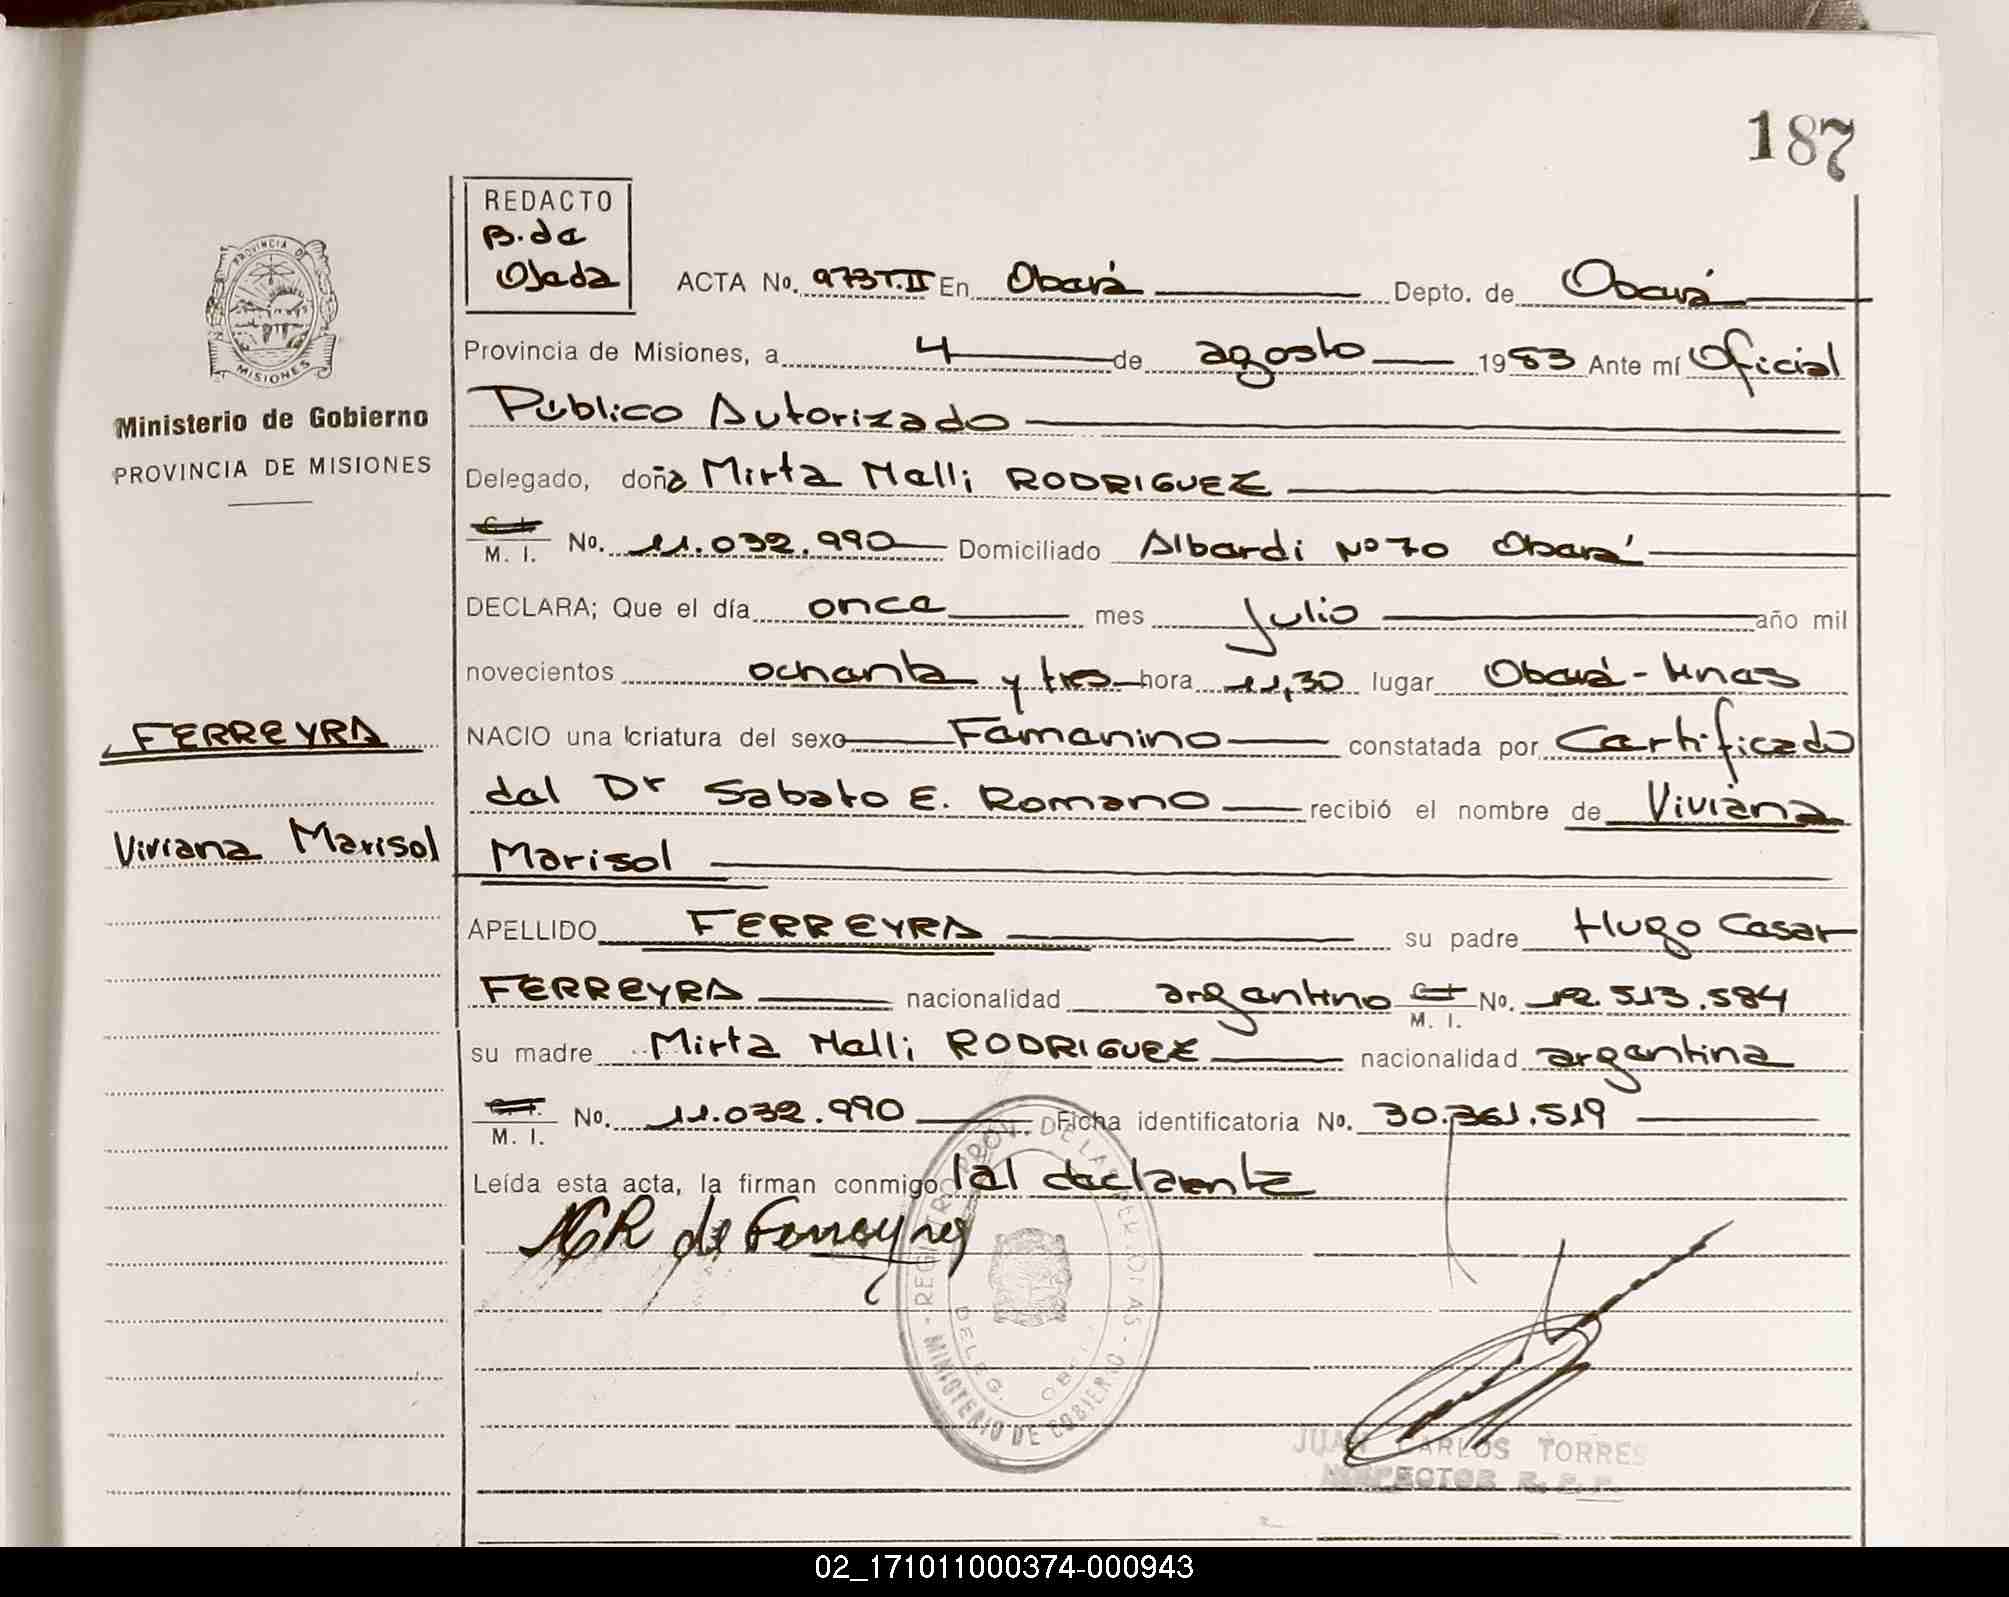 187
REDACTO
B. de
Ojeda
ACTA No. 973 T.II En Oberá Depto. de Oberá
PROVINCIA DE
MISIONES
Ministerio de Gobierno
PROVINCIA DE MISIONES
Provincia de Misiones, a 4 de agosto 1983 Ante mí Oficial
Público Autorizado
Delegado, doña Mirta Nelli RODRIGUEZ
M. I. No. 11.032.990 Domiciliado Alberdi Nº 70 Oberá
DECLARA; Que el día once mes Julio año mil
novecientos ochenta y tres hora 11,30 lugar Oberá - Mnes
FERREYRA
NACIO una criatura del sexo Femenino constatada por Certificado
del Dr Sabato E. Romano recibió el nombre de Viviana
Viviana Marisol
Marisol
APELLIDO FERREYRA su padre Hugo Cesar
FERREYRA nacionalidad argentino M. I. No. 12.513.584
su madre Mirta Nelli RODRIGUEZ nacionalidad argentina
M. I. No. 11.032.990 Ficha identificatoria No. 30.361.519
Leída esta acta, la firman conmigo el declarante
de Ferreyra
REGISTRO PROV. DE LAS PERSONAS - MINISTERIO DE GOBIERNO
DELEG.
JUAN CARLOS TORRES
INSPECTOR R. P. P.
02_171011000374-000943